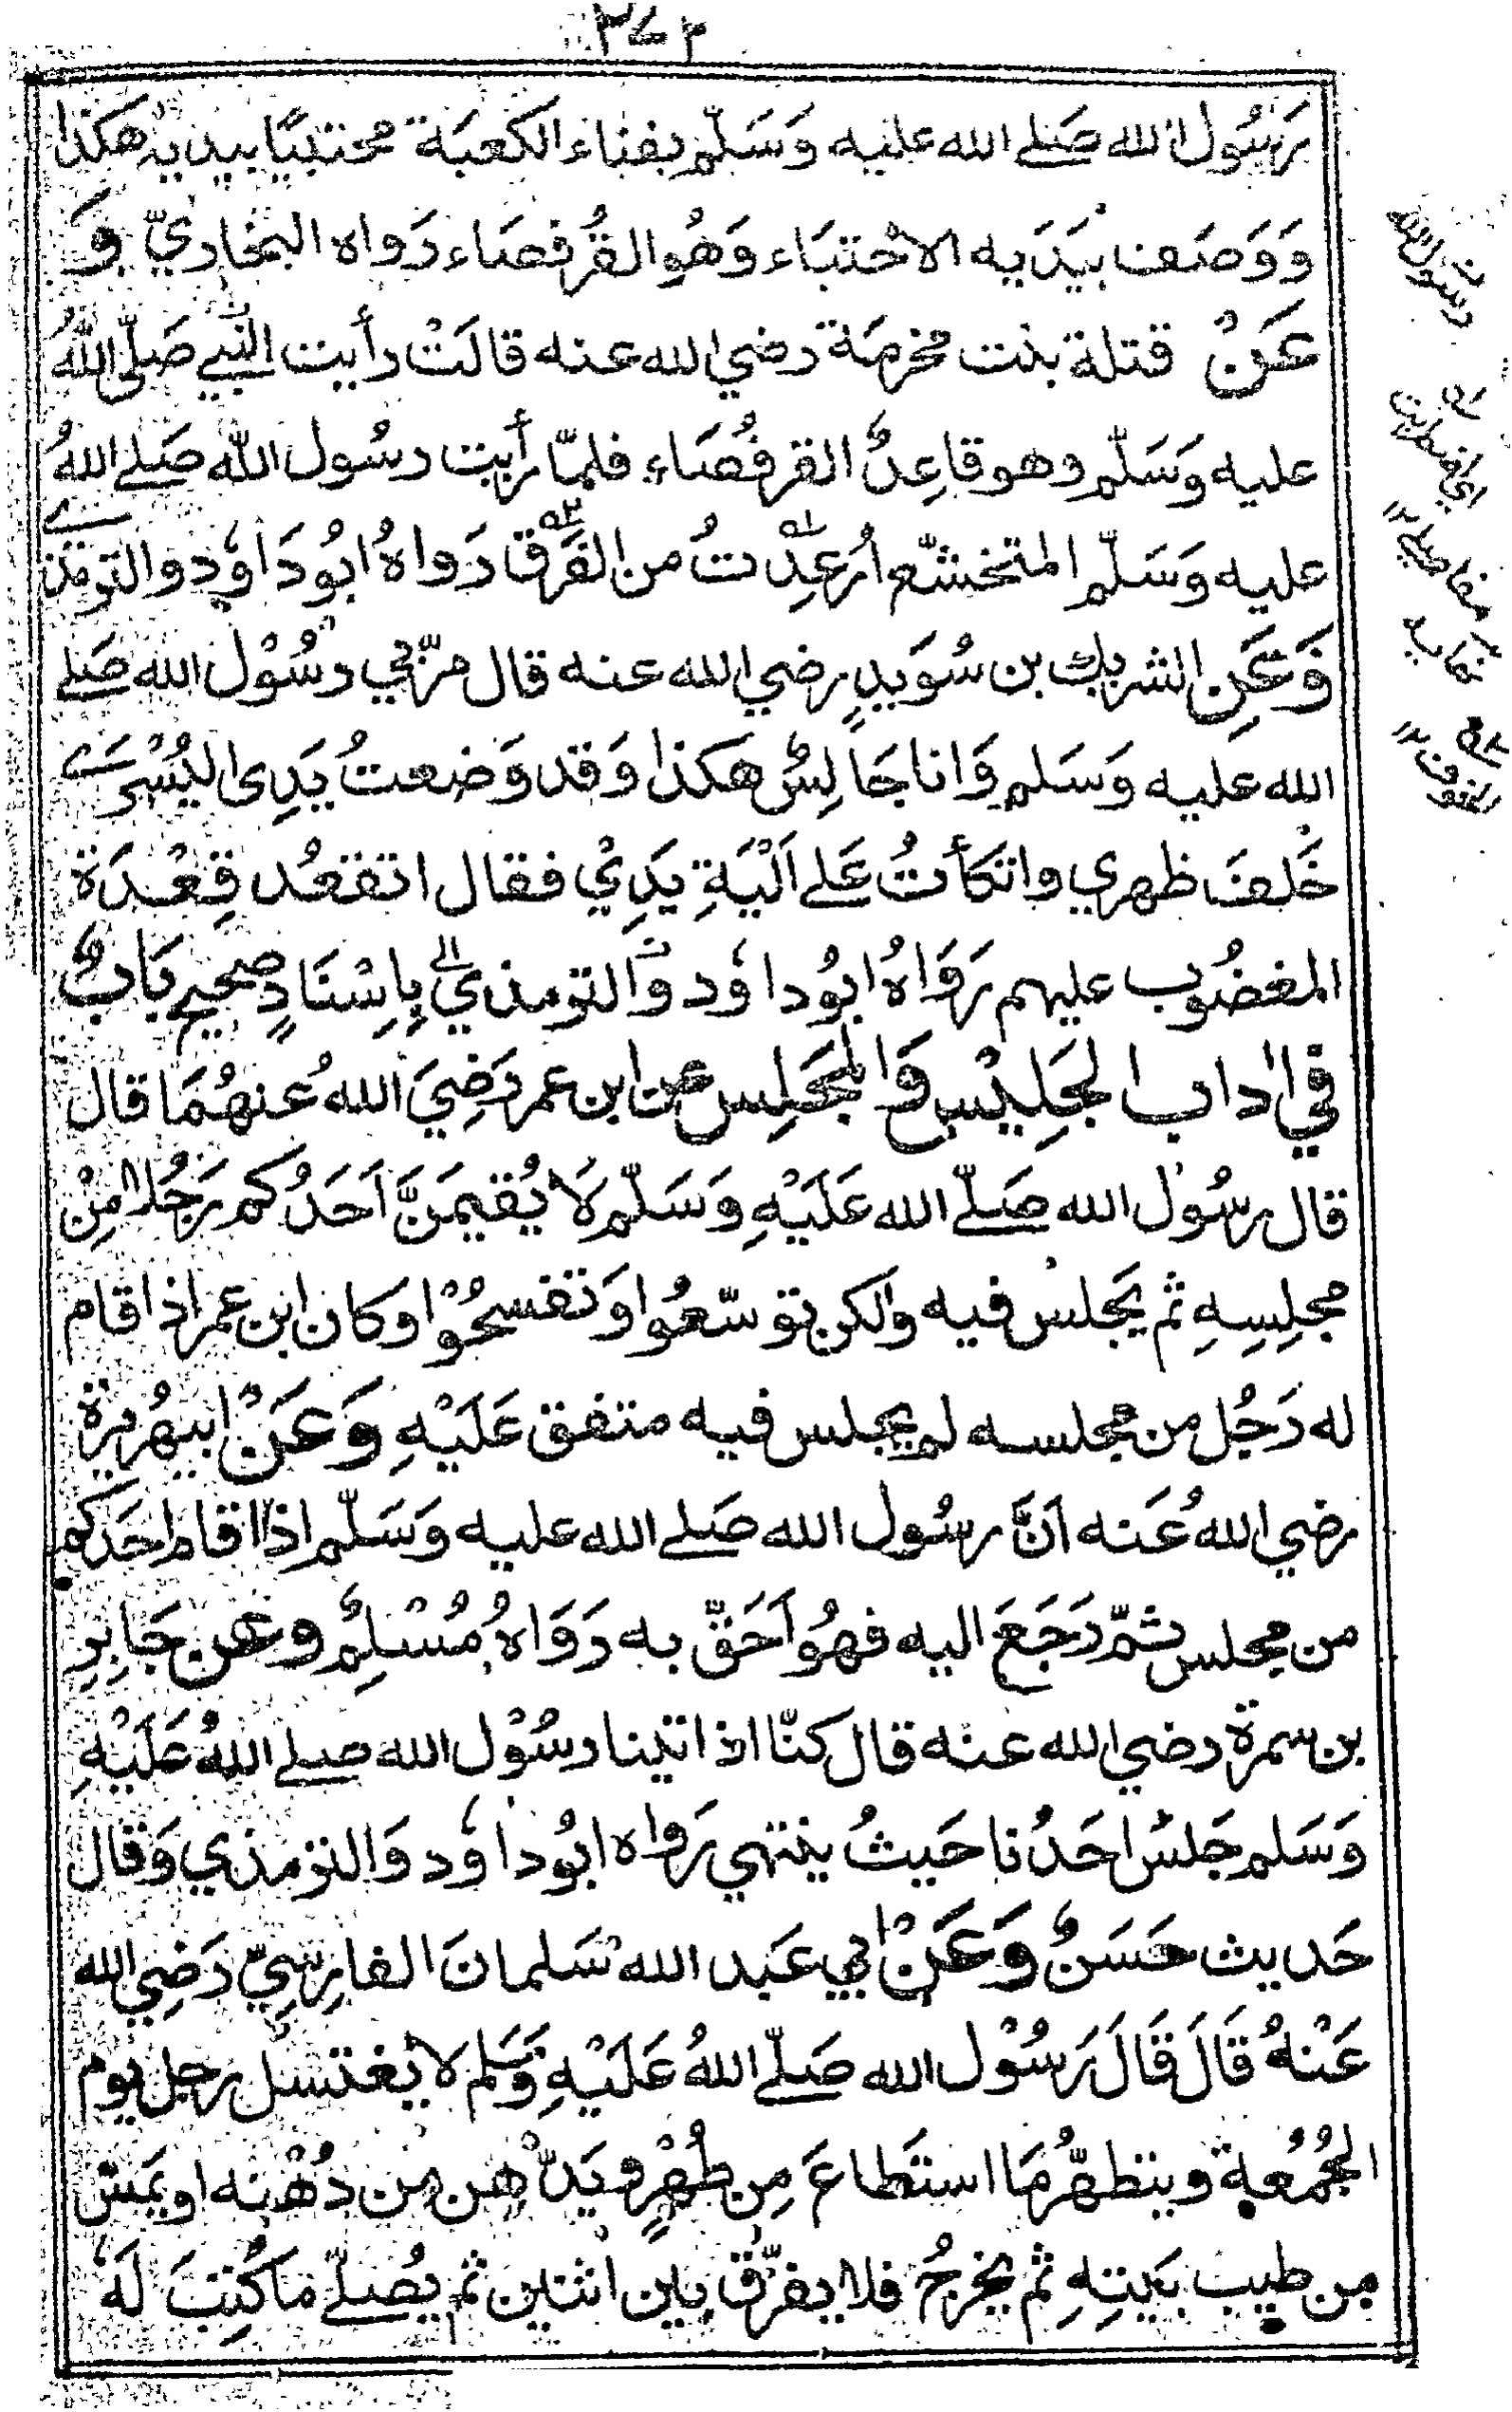 رَسُول الله صَلے الله عليه وَسَلّم بفناء الكعبَة محتبيًا بيديه هكذا
وَوَصَف بيَدَيه الاحْتبَاء وَهُو القُرفصَاء رَواه البخاريّ وَ
عَنْ قتلة بنت مخرمَة رضي الله عنه قالَتْ رأيت النَّبي صَلّى اللّٰهُ
عليه وَسَلّم وهو قاعِدٌ القرفُصَاء فلمّا رأيت رسُول اللّٰه صَلے اللّٰهُ
عليه وَسَلّم المتخشّع اُرعِدْتُ من الفَرَق رَواهُ ابُو دَاوٗد والترمذي
وَعَنِ الشريك بن سُوَيدٍ رضي الله عنه قال مرّ بي رسُوْل الله صَلے
الله عليه وَسَلم وَانا جَالِسٌ هكذا وَقد وَضعتُ يَدِى اليُسْرٰى
خَلفَ ظهري واتكأتُ عَلے اَلْيَةِ يَدِيْ فقال اتقعُد قِعْدَة
المغضُوب عليهم رَوَاهُ ابُو داوٗد وَالترمذي بِاِسْنَادٍ صحيح بَابٌ
في اٰداب الجَلِيْس وَالمجَلِس عن ابن عمر رَضِيَ اللهُ عنهُمَا قال
قال رسُوْل الله صَلّے الله عَلَيْهِ وَسَلّم لَا يُقيمَنَّ اَحَدُكم رَجُلا مِنْ
مجلِسِهِ ثم يَجلسُ فيه ولكن توسّعُوا وَتفسحُوْا وكان ابن عمر اذا قام
له رَجُل من مجلسه لم يجلس فيه متفق عَلَيْهِ وَعَنْ ابيهُريرة
رضي اللهُ عَنه اَنَّ رسُول الله صَلے الله عليه وَسَلّم اذا قام احَدكم
من مجلس ثمّ رَجَعَ اليه فهُو اَحَقّ به رَوَاهُ مُسْلِمٌ وعن جَابِرِ
بن سمرة رضي الله عنه قال كنّا اذا اتينا رسُوْل الله صلے اللّٰهُ عَلَيْهِ
وَسَلم جَلسَ احَدُنا حَيثُ ينتهي رَواه ابُو داوٗد وَالترمذي وَقال
حَديث حَسَنٌ وَعَنْ ابي عَبد الله سَلمانَ الفارِسِيّ رَضِي الله
عَنْهُ قَالَ قَالَ رَسُوْل الله صَلّے اللهُ عَلَيْهِ وَسَلم لا يَغتسل رجل يوم
الجُمُعة ويتطهّرُ مَا استَطاعَ مِن طُهْرٍ ويَدّهن مِن دُهْنه او يَمَسّ
مِن طيب بَيتِهِ ثم يخرجُ فلا يفرّقُ بين اثنين ثم يُصَلّے ما كُتِبَ لَهٗ